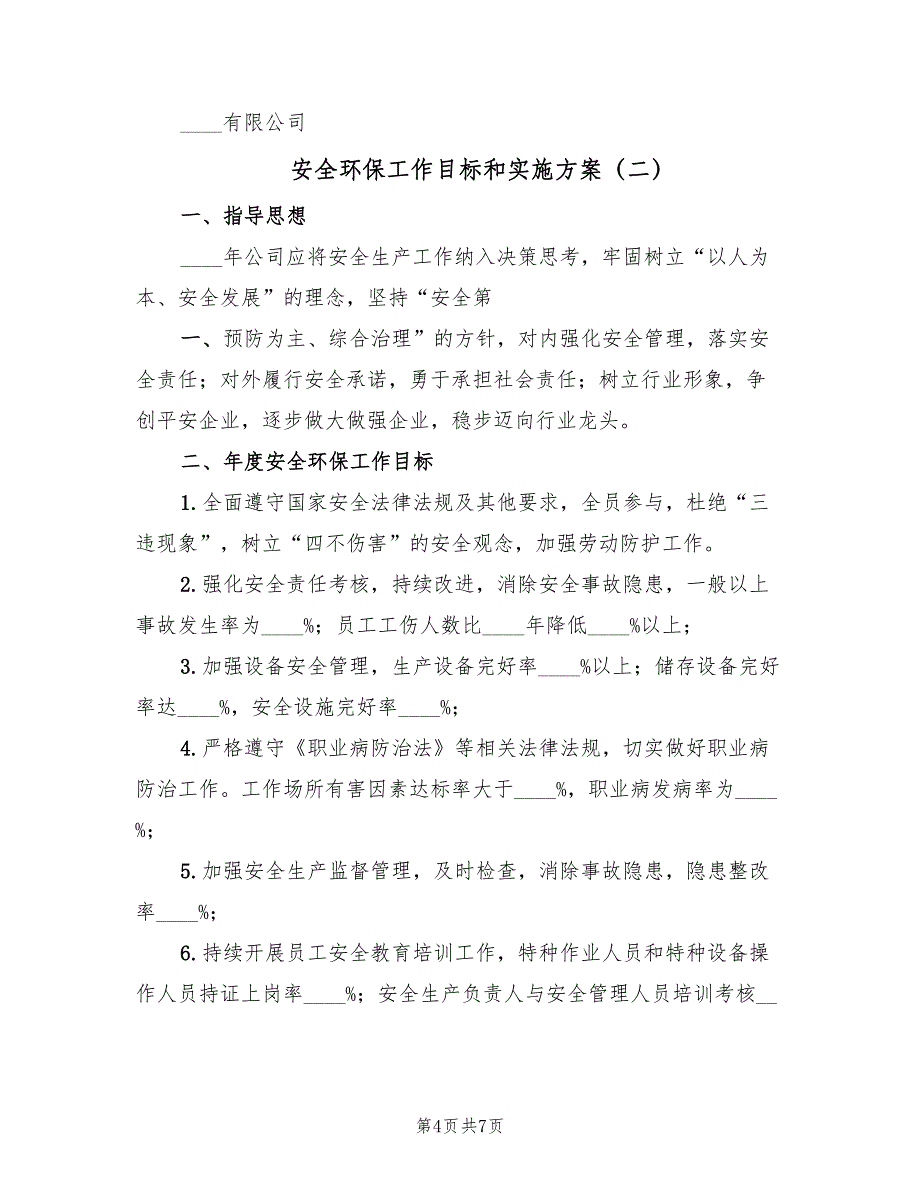 ____有限公司
安全环保工作目标和实施方案（二）
一、指导思想
____年公司应将安全生产工作纳入决策思考，牢固树立“以人为
本、安全发展”的理念，坚持“安全第
一、预防为主、综合治理”的方针，对内强化安全管理，落实安
全责任；对外履行安全承诺，勇于承担社会责任；树立行业形象，争
创平安企业，逐步做大做强企业，稳步迈向行业龙头。
二、年度安全环保工作目标
1.全面遵守国家安全法律法规及其他要求，全员参与，杜绝“三
违现象”，树立“四不伤害”的安全观念，加强劳动防护工作。
2.强化安全责任考核，持续改进，消除安全事故隐患，一般以上
事故发生率为____%；员工工伤人数比____年降低____%以上；
3.加强设备安全管理，生产设备完好率____%以上；储存设备完好
率达____%，安全设施完好率____%；
4.严格遵守《职业病防治法》等相关法律法规，切实做好职业病
防治工作。工作场所有害因素达标率大于____%，职业病发病率为____
%；
5.加强安全生产监督管理，及时检查，消除事故隐患，隐患整改
率____%；
6.持续开展员工安全教育培训工作，特种作业人员和特种设备操
作人员持证上岗率____%；安全生产负责人与安全管理人员培训考核__
第4页共7页